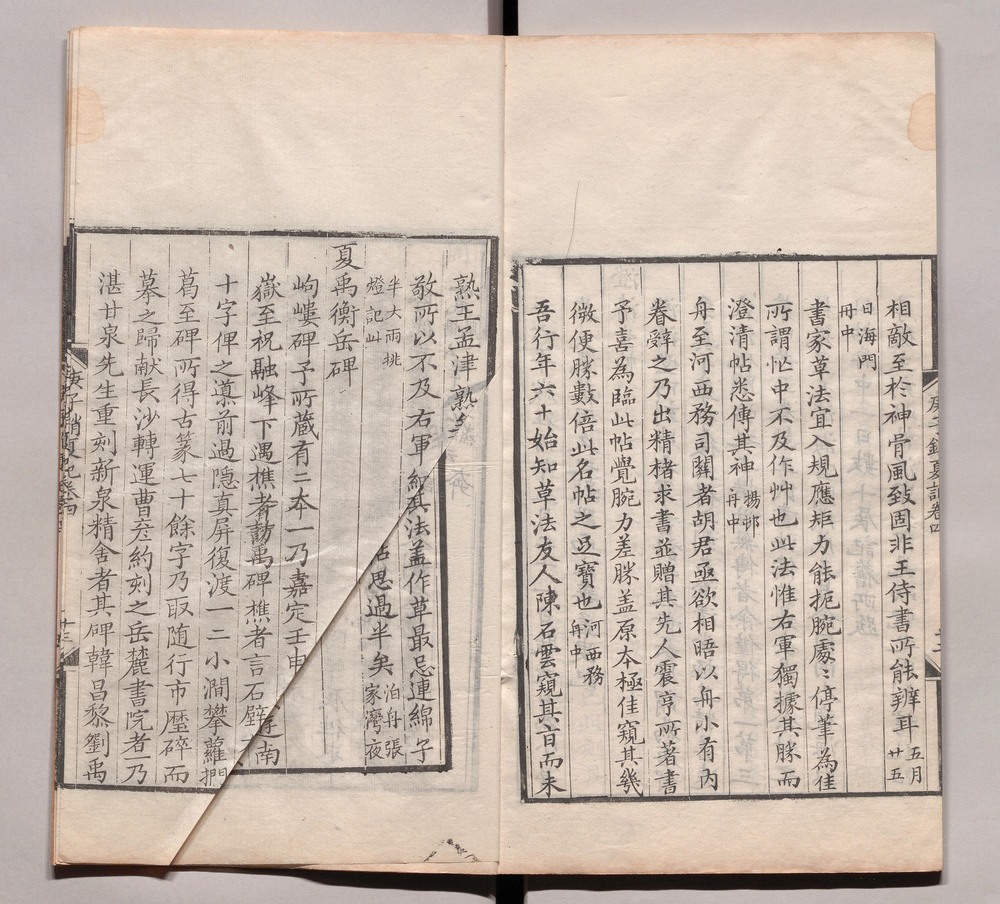 相敵至於神骨風致固非王侍書所能辨耳五月廿五
日海門舟中
書家草法宜入規應矩力能扼腕處〻停筆為佳
所謂忙中不及作艸也此法惟右軍獨據其勝而
澄清帖悉傳其神楊邨舟中
舟至河西務司關者胡君亟欲相晤以舟小有內
眷辭之乃出精楮求書並贈其先人震亨所著書
予喜為臨此帖覺腕力差勝盖原本極佳窺其幾
微便勝數倍此名帖之足寶也河西務舟中
吾行年六十始知草法友人陳石雲窺其旨而未
庚子銷夏記卷四
熟王孟津熟矣
敬所以不及右軍
法盖作草最忌連綿子
思過半矣泊舟張家灣夜
半大雨挑燈記此
夏禹衡岳碑
岣嶁碑予所藏有二本一乃嘉定壬申
嶽至祝融峰下遇樵者
禹碑樵者言石壁
南
十字俾之導前過隱真屏復渡一二小澗攀蘿捫
葛至碑所得古篆七十餘字乃取随行市歷碎而
摹之歸献長沙轉運曹
約刻之岳麓書院者一乃
湛甘泉先生重刻新泉精舍者其碑韓昌黎劉禹
庚子銷夏記卷四